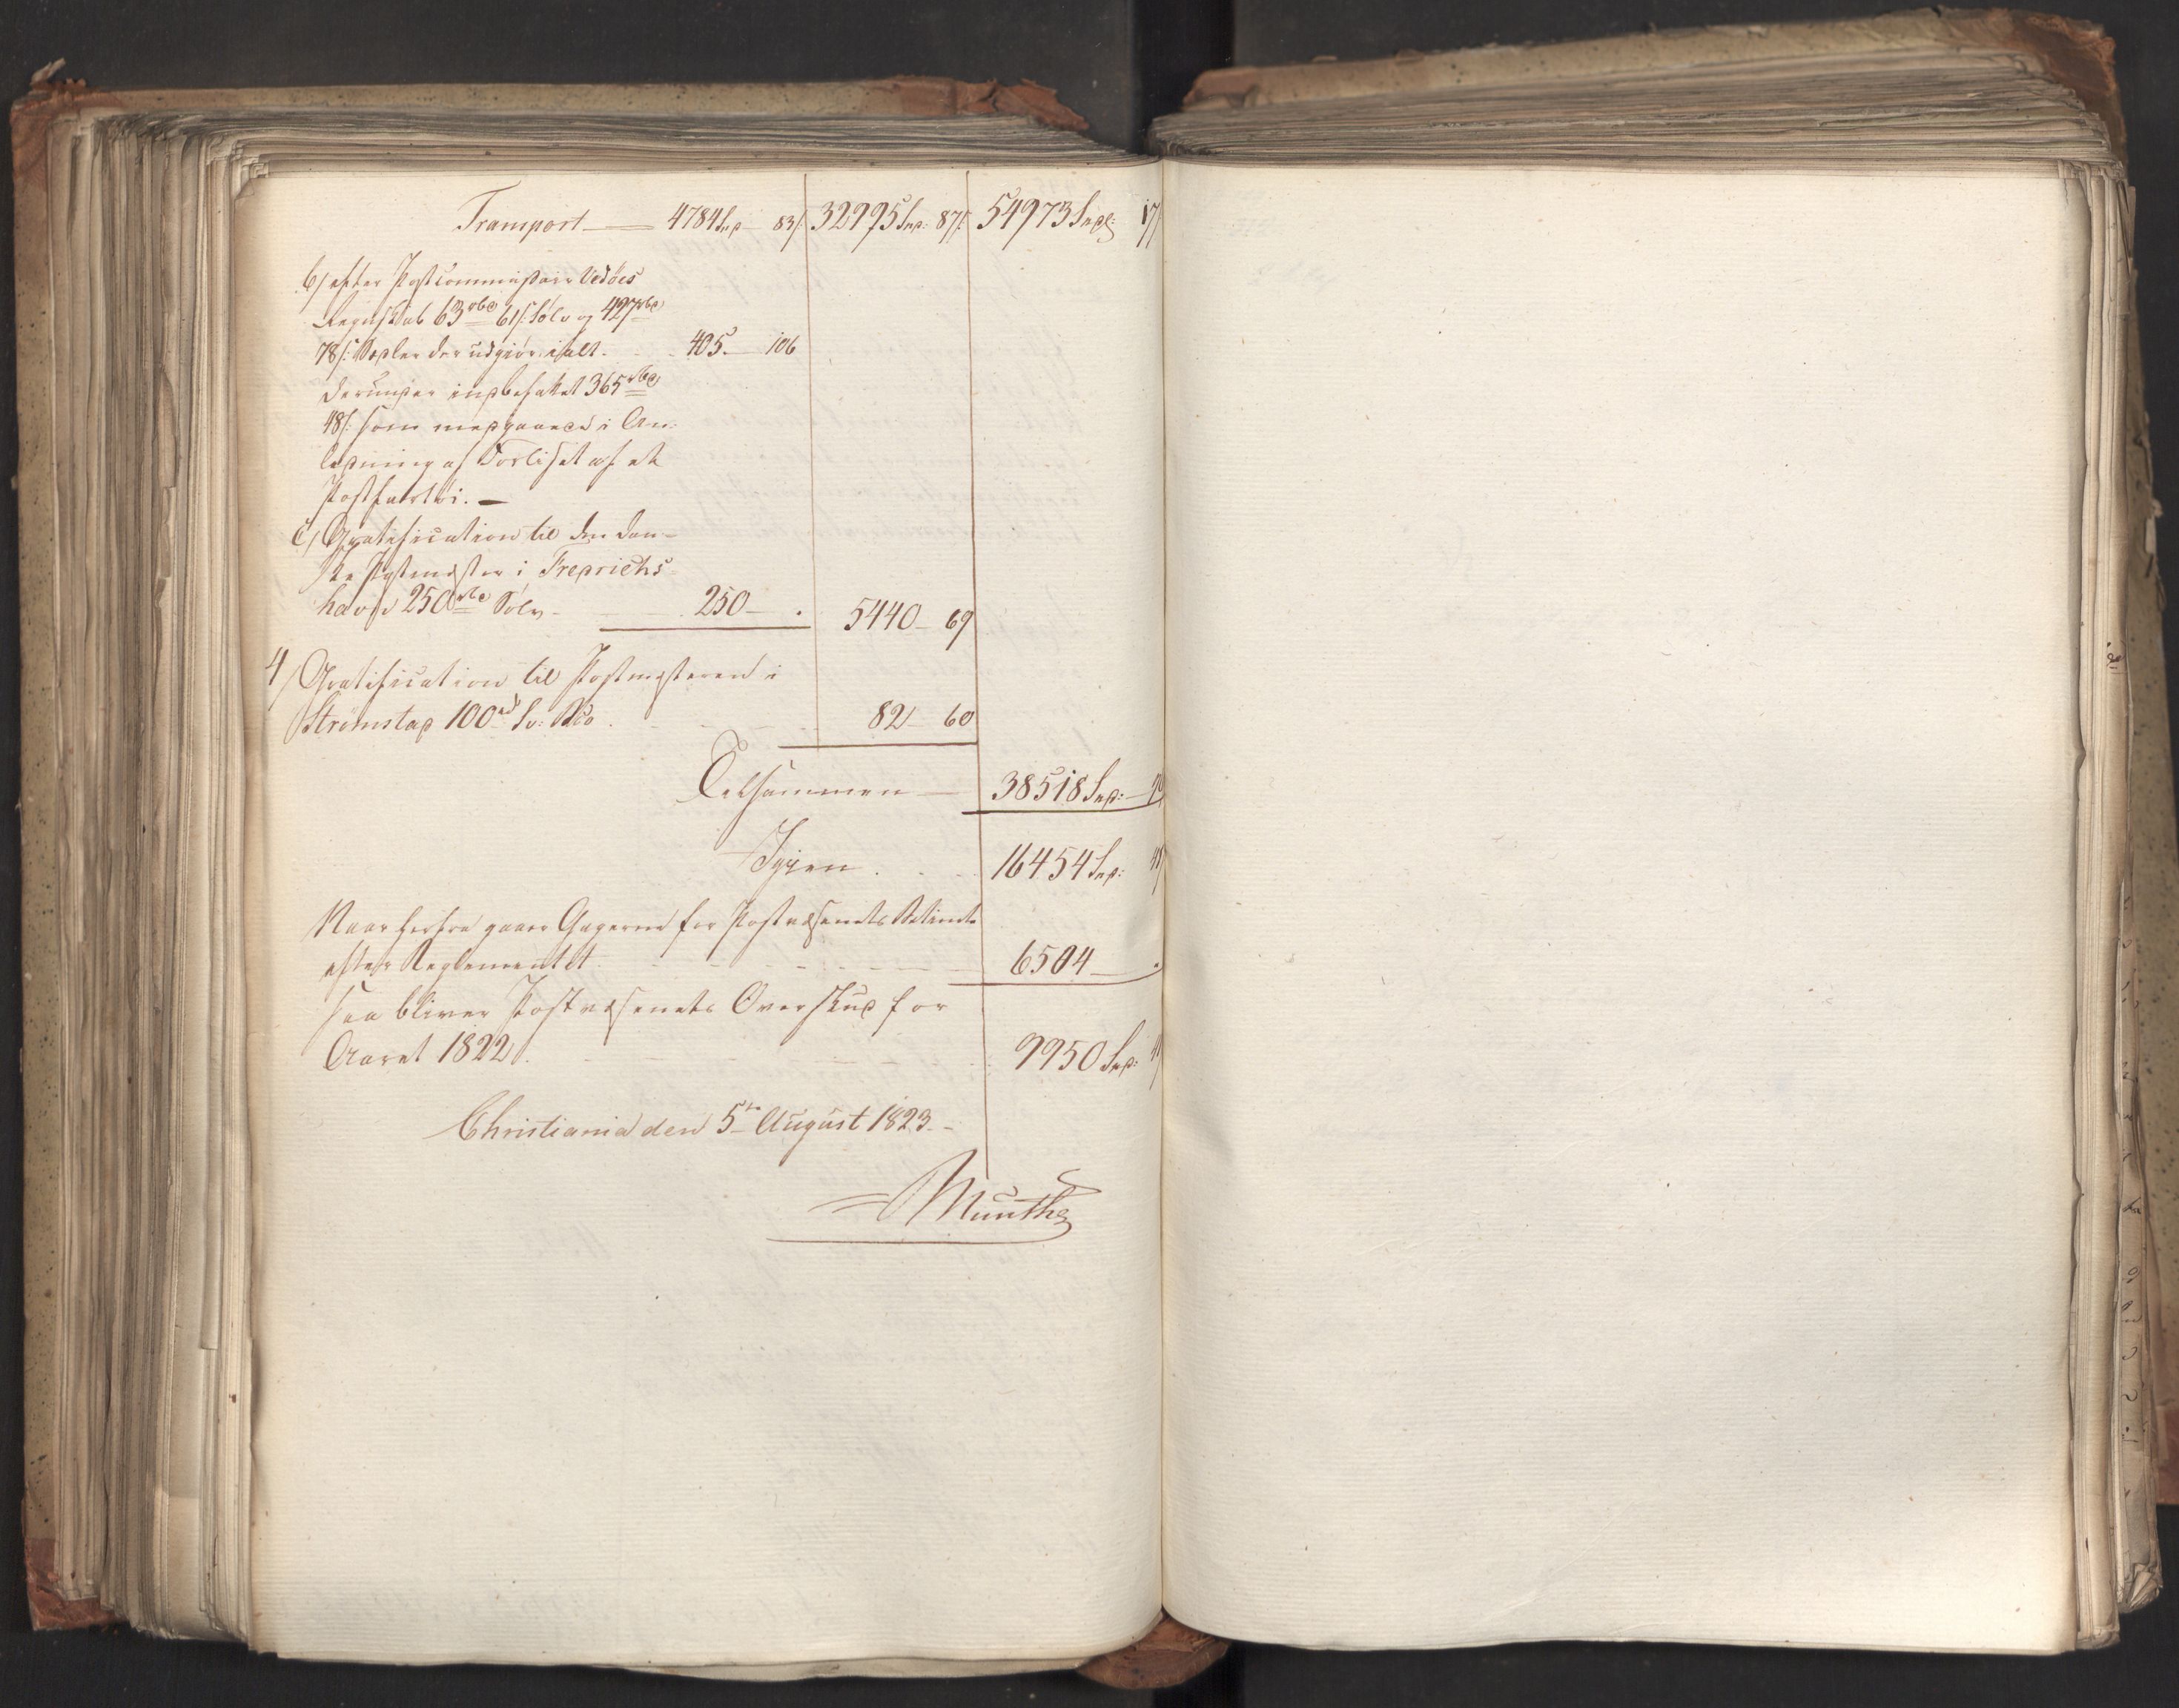 Transport — 4784 Spd 83 s. 32995 Spd: 87 s. 54973 Spd: 17 s.
b, efter Postcommissair Vedöes
Regnskab 63 rbd 61 s: Sölv og 427 rbd
78 s: Sedler der udgiör ialt . . 405. — 106
derunder indbefattet 365 rbd
48 s: som medgaaed i An-
ledning af Forliset af et
Postfartöi. —
c, Gratification til den dan-
ske Postmester i Fredrichs-
havn 250 rbd Sölv - — 250 — . 5440 — 69
4, Gratification til Postmesteren i
Strömstad 100 rd Sv: Bco . — — 82 — 60
Tilsammen — 38518 Spd: —
Igien . . . 16454 Spd:
Naar herfra gaaer Gagerne for Postvæsenets
efter Reglementet — — — 6504 — .
saa bliver Postvæsenets Overskud for
Aaret 1822 . — — — 9950 Spd:
Christiania den 5te August 1823. -
Munthe